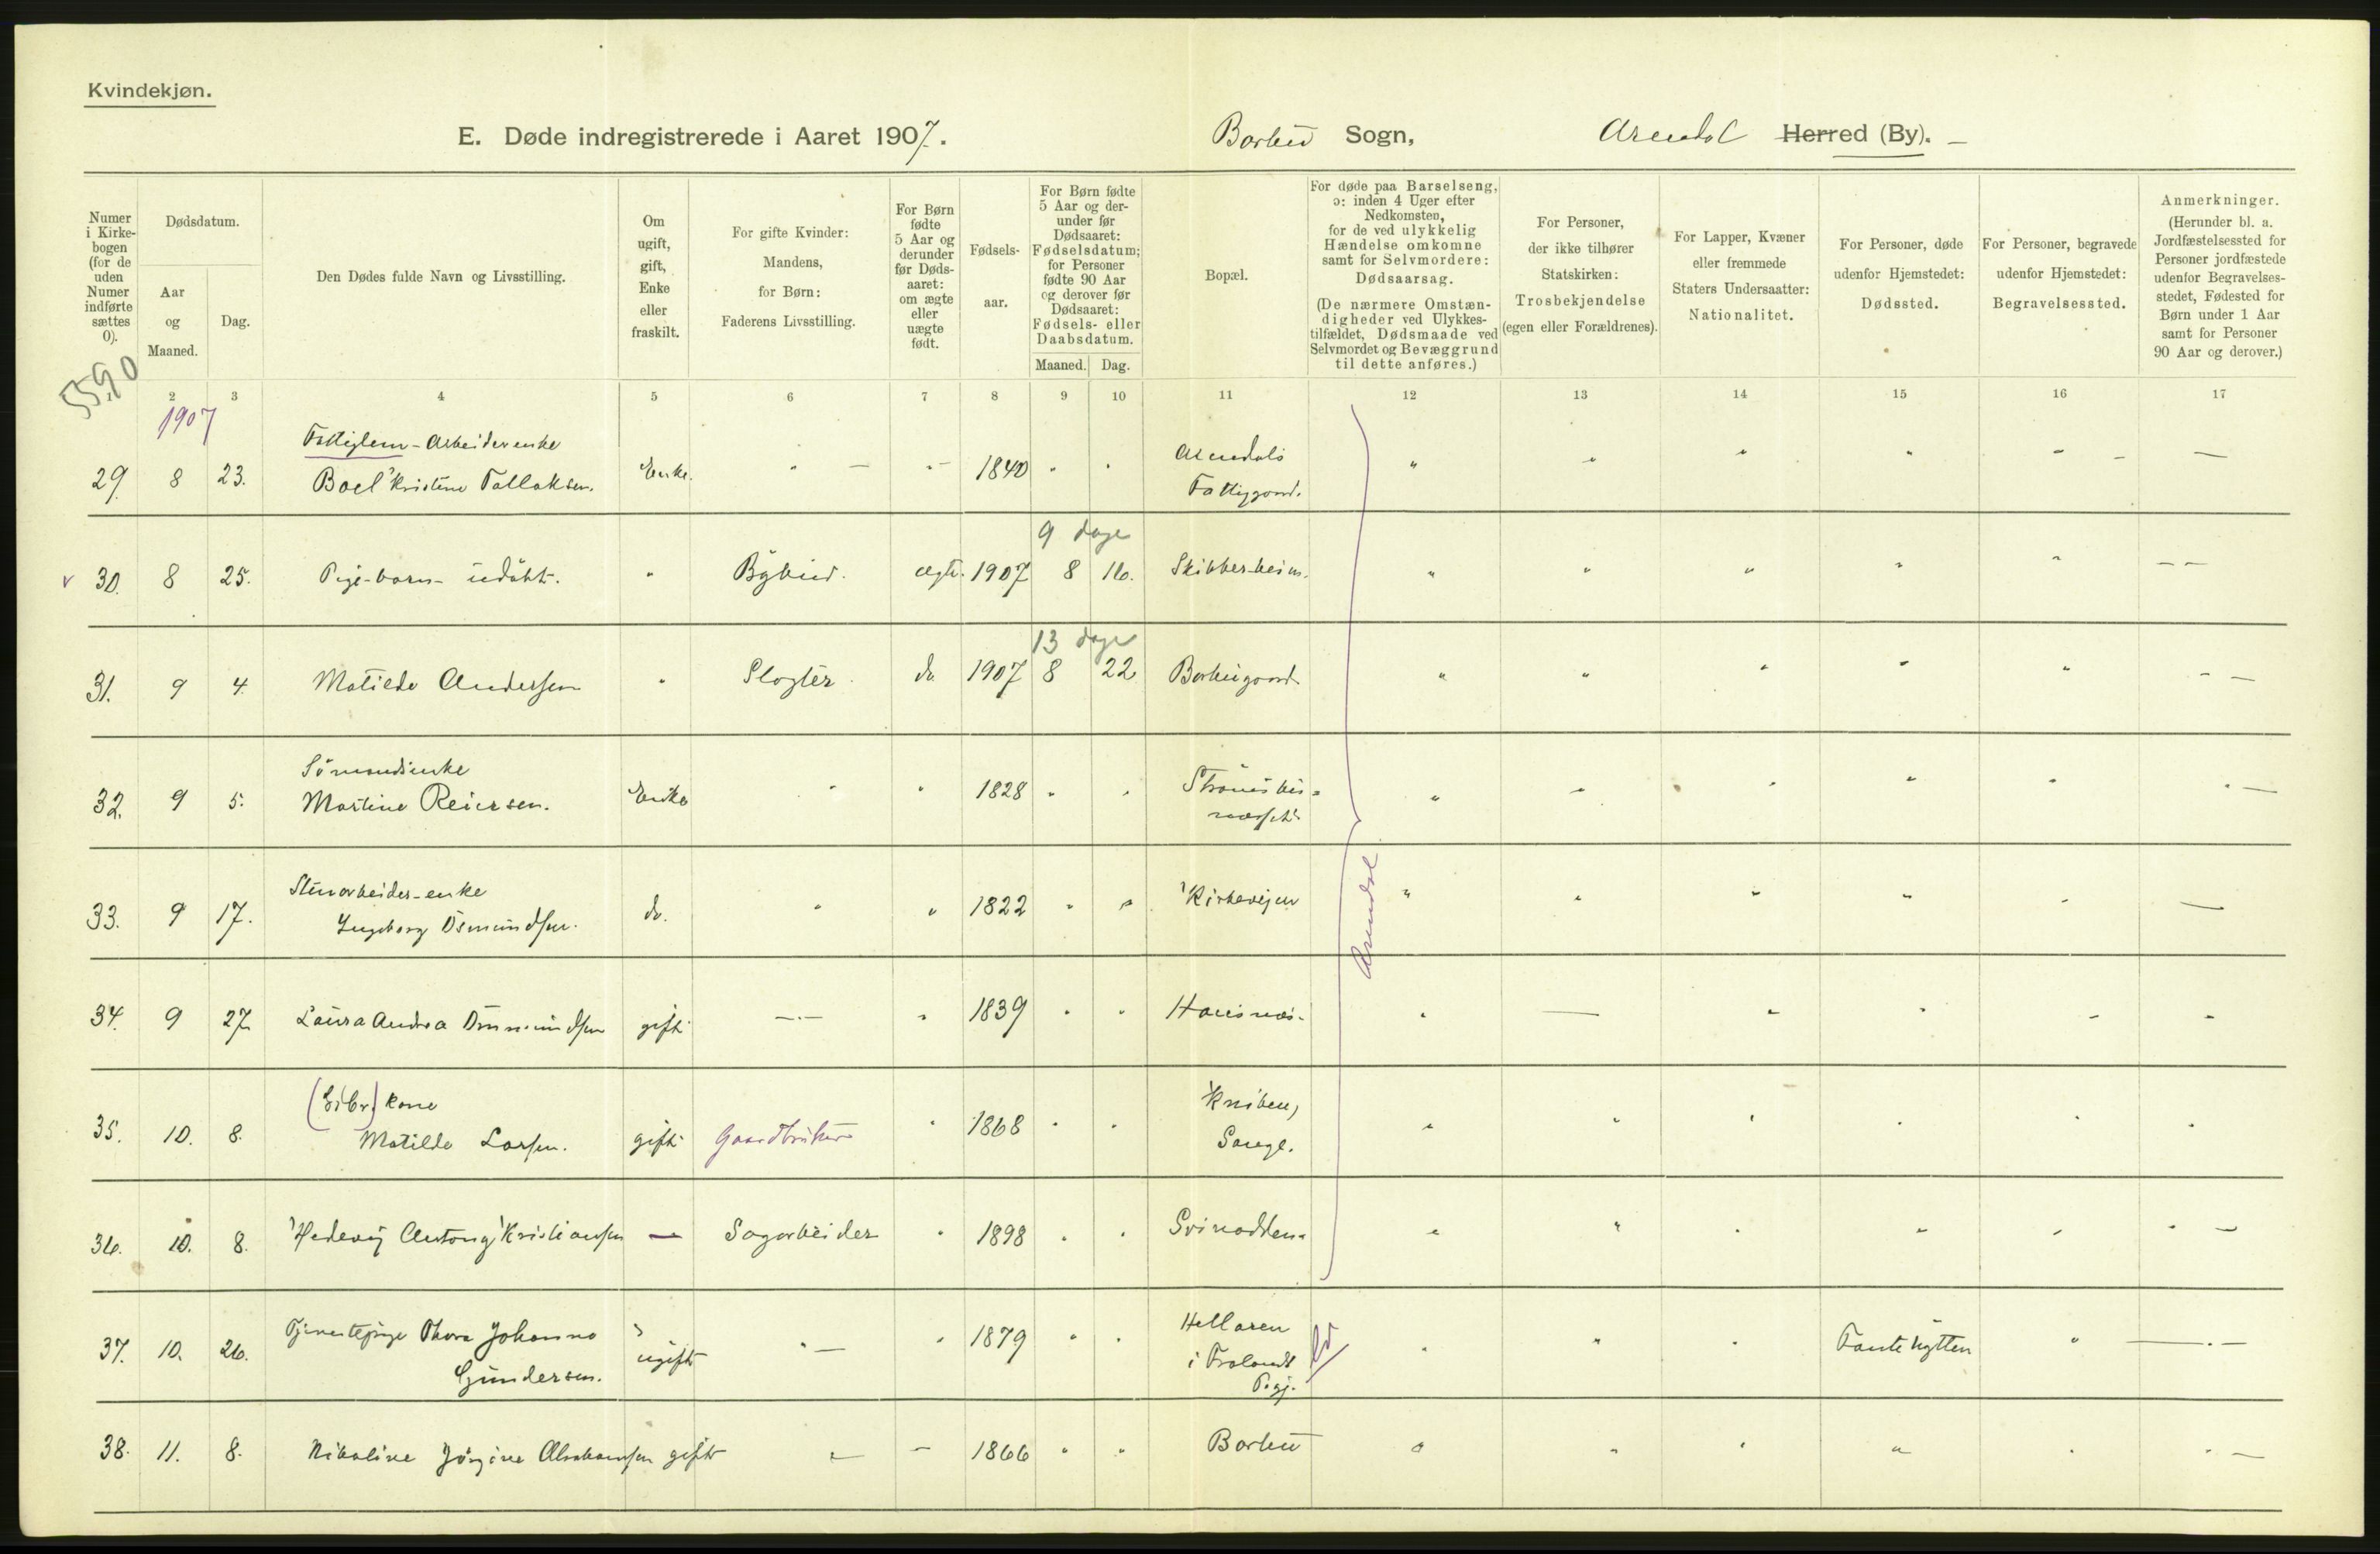 Kvindekjøn.
E. Døde indregistrerede i Aaret 1907. Barbu Sogn, Arendal Herred (By).
Numer i Kirkebogen (for de uden Numer indførte sættes 0).
Dødsdatum.
Aar og Maaned.
Dag.
Den Dødes fulde Navn og Livsstilling.
Om ugift, gift, Enke eller fraskilt.
For gifte Kvinder: Mandens, for Børn: Faderens Livsstilling.
For Børn fødte 5 Aar og derunder før Dødsaaret: om ægte eller uægte født.
Fødselsaar.
For Børn fødte 5 Aar og derunder før Dødsaaret: Fødselsdatum; for Personer fødte 90 Aar og derover før Dødsaaret: Fødsels- eller Daabsdatum.
Maaned. Dag.
Bopæl.
For døde paa Barselseng, ɔ: inden 4 Uger efter Nedkomsten, for de ved ulykkelig Hændelse omkomne samt for Selvmordere: Dødsaarsag.
(De nærmere Omstændigheder ved Ulykkestilfældet, Dødsmaade ved Selvmordet og Bevæggrund til dette anføres.)
For Personer, der ikke tilhører Statskirken: Trosbekjendelse (egen eller Forældrenes).
For Lapper, Kvæner eller fremmede Staters Undersaatter: Nationalitet.
For Personer, døde udenfor Hjemstedet: Dødssted.
For Personer, begravede udenfor Hjemstedet: Begravelsessted.
Anmerkninger.
(Herunder bl. a. Jordfæstelsessted for Personer jordfæstede udenfor Begravelsesstedet, Fødested for Børn under 1 Aar samt for Personer 90 Aar og derover.)
5590
2 3 4 5 6 7 8 9 10 11 12 13 14 15 16 17
1907
Fattiglem - Arbeiderenke
29. 8 23. Boel Kristine Tallaksen. Enke. " — "— 1840 " " Arendals Fattiggaard. " " " " " — —
9 dage
v 30. 8 25. Pige-barn- udöbt. " Bybud. ægte. 1907 8 16. Skibberheim. " " " " " — —
13 dage
31. 9 4. Matilde Andersen " Slagter. do. 1907 8 22 Barbugaard. " " " " " - —
Sömandsenke
32. 9 5. Martine Reiersen. Enke " " 1828 " " " " " " " " —
Stenarbeider-enke
33. 9 17. Ingeborg Osmundsen. do. " " 1822 " " Kirkeveien " " " " " —
Arendal
34. 9 27. Laura Andrea gift — · — " 1839 " " Hausnæs. " — " " " "
kone
35. 10. 8. Matilde Larsen. gift Gaardbruker " 1868 " " Kniben, Songe. " " " " " "
36. 10. 8. Hedevig Antony Kristiansen — Sagarbeider " 1898 " " Svinodden. " " " " " " —
37. 10. 26. Tjenestepige Thora Johanna Gundersen. ugift " — " 1879 " " Hellaren i Frolands Pgj. " " " Fantehytten " — · —
38. 11. 8. Nikoline Jörgine Abrahamsen gift — — 1866 " " Barbu " " " " " " —